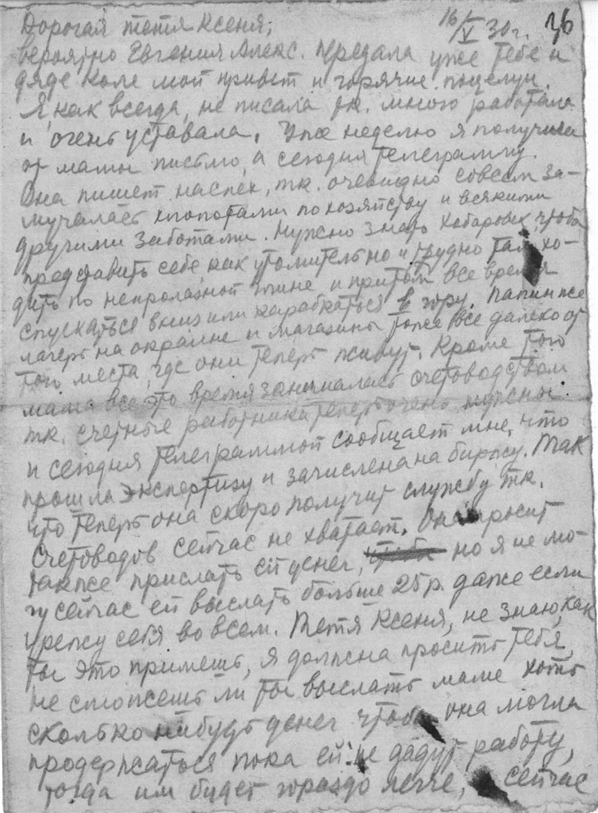 36
16/V 30 г.
Дорогая тетя Ксеня,
вероятно Евгения Алекс. передала уже тебе и
дяде Коле мой привет и горячие поцелуи.
Я как всегда, не писала т.к. много работала
и очень уставала. Уже неделю я получила
от мамы письмо, а сегодня телеграмму.
Она пишет наспех, т.к. очевидно совсем за-
мучалась хлопотами по хозяйству и всякими
другими заботами. Нужно знать Хабаровск, чтоб
представить себе как утомительно и трудно там хо-
дить по непролазной глине и притом все время
спускаться вниз или карабкаться в гору. Папин же
лагерь на окраине и магазины тоже все далеко от
того места, где они теперь живут. Кроме того
мама все это время занималась счетоводством
т.к. счетные работники теперь очень нужны
и сегодня телеграммой сообщает мне, что
прошла экспертизу и зачислена на биржу. Так
что теперь она скоро получит службу т.к.
счетоводов сейчас не хватает. Она просит
также прислать ей денег, но я не мо-
гу сейчас ей выслать больше 25 р. даже если
урежу себя во всем. Тетя Ксеня, не знаю, как
ты это примешь, я должна просить тебя,
не сможешь ли ты выслать маме хоть
сколько нибудь денег чтоб она могла
продержаться пока ей не дадут работу,
тогда им будет гораздо легче, сейчас